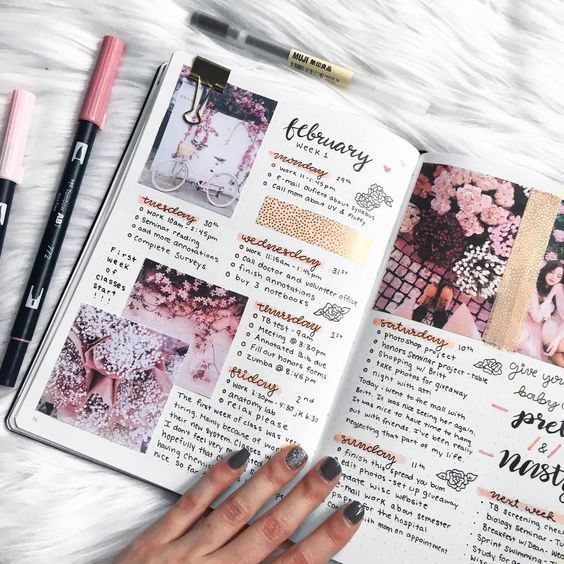 MUJ 無印良品
february
week 1
monday 29th
work 11 - 1:45pm
e-mail Outters about syllabus
call mom about UV & fluffy
tuesday 30th
work 10am - 2:45pm
seminar reading
add more annotations
complete surveys
First
week
of
classes
start!!!
wednesday 31st
work 11:15am - 1:45pm
call doctor and volunteer office
finish annotations
buy 3 notebooks
thursday 1st
TB test - 9am
Meeting @ 3:30pm
Annotated Bib due
Fill out honors form
Zumba @ 8:45pm
friday 2nd
work 1:30pm
anatomy lab
relax please
The first week of class was
tiring, mainly because of work
I don't feel very
saturday 10th
photoshop project
honors seminar project - table
shopping w/ Brit
take photos for giveaway
night with atri
Today I went to the mall with
Britt. It was nice seeing her again.
It was nice to have time to hang
out with friends. I've been really
neglecting that part of my life.
give you
baby
pret
&
nasty
sunday 11th
finish this spread you bum
edit photos - set up giveaway
update wisc website
e-mail work about semester
paper for the hospital
mom on appointment
next week
TB screening check
biology seminar - Tu
Breakfast w/ Dean - Wed
Sprint Swimming - Tu
Study for